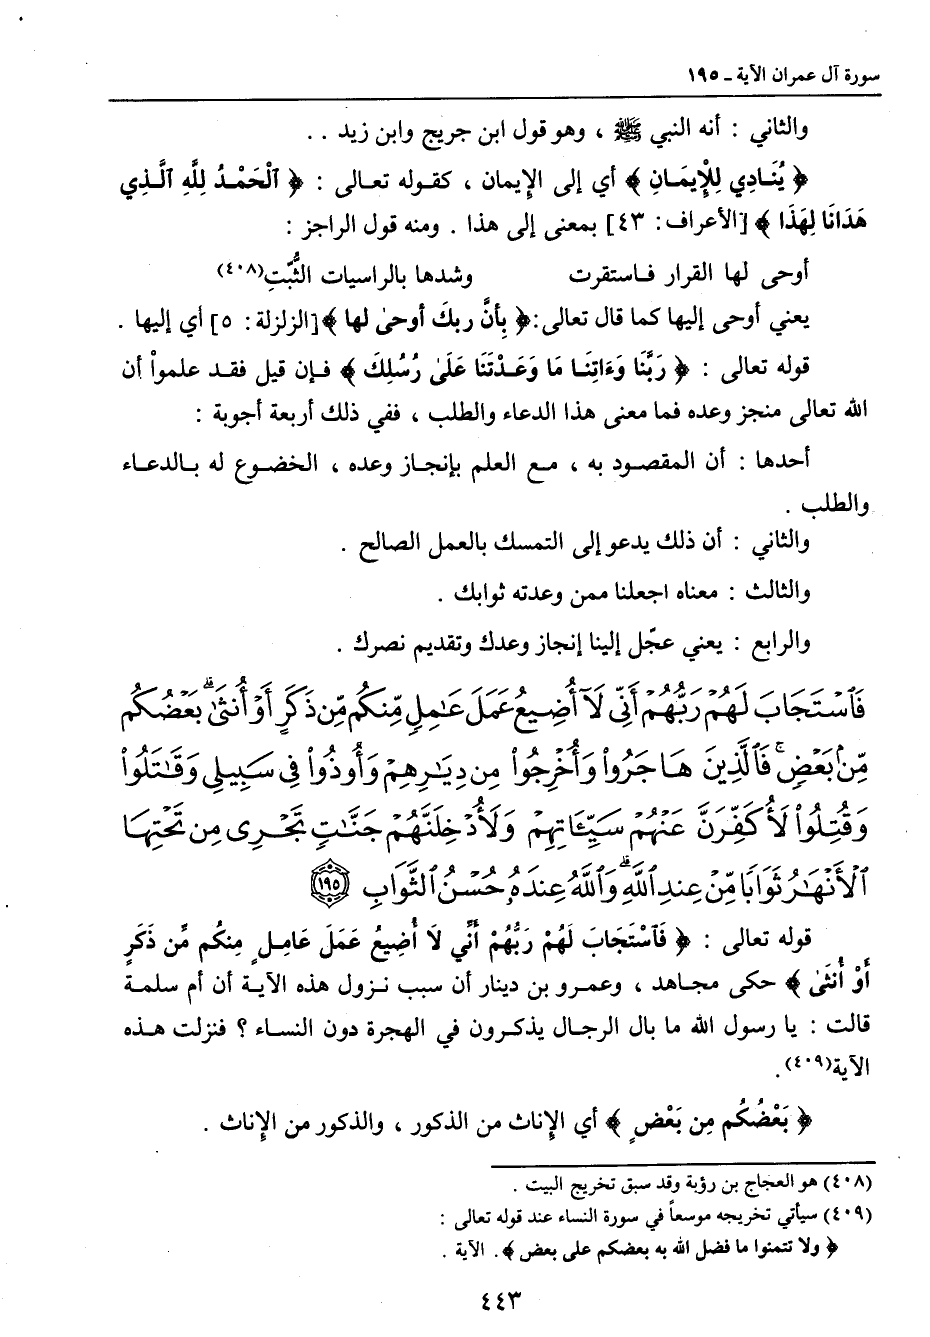 سورة آل عمران الآية ـ ١٩٥
والثاني : أنه النبي ﷺ ، وهو قول ابن جريج وابن زيد . .
﴿ يُنَادِي لِلْإِيمَانِ ﴾ أي إلى الإيمان ، كقوله تعالى : ﴿ ٱلْحَمْدُ لِلَّهِ ٱلَّذِي
هَدَانَا لِهَذَا ﴾ [الأعراف: ٤٣] بمعنى إلى هذا . ومنه قول الراجز :
أوحى لها القرار فاستقرت وشدها بالراسيات الثُّبَّتِ(٤٠٨)
يعني أوحى إليها كما قال تعالى:﴿ بِأنَّ ربكَ أوحىٰ لها ﴾[الزلزلة: ٥] أي إليها .
قوله تعالى : ﴿ رَبَّنَا وَءَاتِنَا مَا وَعَدْتَنَا عَلَىٰ رُسُلِكَ ﴾ فإن قيل فقد علموا أن
الله تعالى منجز وعده فما معنى هذا الدعاء والطلب ، ففي ذلك أربعة أجوبة :
أحدها : أن المقصود به ، مع العلم بإنجاز وعده ، الخضوع له بالدعاء
والطلب .
والثاني : أن ذلك يدعو إلى التمسك بالعمل الصالح .
والثالث : معناه اجعلنا ممن وعدته ثوابك .
والرابع : يعني عجّل إلينا إنجاز وعدك وتقديم نصرك .
فَٱسْتَجَابَ لَهُمْ رَبُّهُمْ أَنِّى لَآ أُضِيعُ عَمَلَ عَٰمِلٍ مِّنكُم مِّن ذَكَرٍ أَوْ أُنثَىٰ ۖ بَعْضُكُم
مِّنۢ بَعْضٍ ۖ فَٱلَّذِينَ هَاجَرُوا۟ وَأُخْرِجُوا۟ مِن دِيَٰرِهِمْ وَأُوذُوا۟ فِى سَبِيلِى وَقَٰتَلُوا۟
وَقُتِلُوا۟ لَأُكَفِّرَنَّ عَنْهُمْ سَيِّـَٔاتِهِمْ وَلَأُدْخِلَنَّهُمْ جَنَّٰتٍ تَجْرِى مِن تَحْتِهَا
ٱلْأَنْهَٰرُ ثَوَابًا مِّنْ عِندِ ٱللَّهِ ۗ وَٱللَّهُ عِندَهُۥ حُسْنُ ٱلثَّوَابِ ١٩٥
قوله تعالى : ﴿ فَٱسْتَجَابَ لَهُمْ رَبُّهُمْ أَنِّي لَا أُضِيعُ عَمَلَ عَامِلٍ مِنكُم مِّن ذَكَرٍ
أَوْ أُنثَىٰ ﴾ حكى مجاهد ، وعمرو بن دينار أن سبب نزول هذه الآية أن أم سلمة
قالت : يا رسول الله ما بال الرجال يذكرون في الهجرة دون النساء ؟ فنزلت هذه
الآية(٤٠٩).
﴿ بَعْضُكُم مِن بَعْضٍ ﴾ أي الإناث من الذكور ، والذكور من الإناث .
(٤٠٨) هو العجاج بن رؤبة وقد سبق تخريج البيت .
(٤٠٩) سيأتي تخريجه موسعاً في سورة النساء عند قوله تعالى :
﴿ ولا تتمنوا ما فضل الله به بعضكم على بعض ﴾. الآية .
٤٤٣